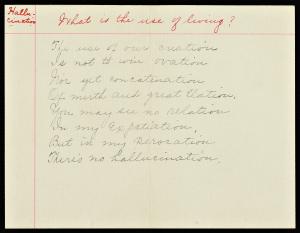 Hallu-
cination
What is the use of living?
The use of our creation
Is not to win ovation
Nor yet concatenation
Of mirth and great elation.
You may see no relation
In my Expatiation,
But in my Peroration
There's no hallucination.